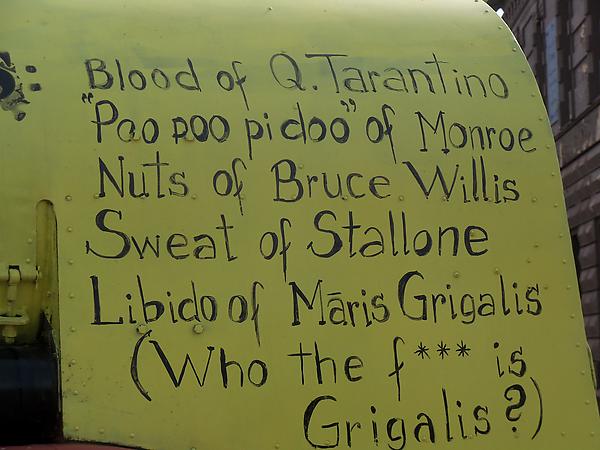 Blood of Q. Tarantino
"Poo poo pidoo" of Monroe
Nuts of Bruce Willis
Sweat of Stallone
Libido of Māris Grigalis
(Who the f*** is
Grigalis?)